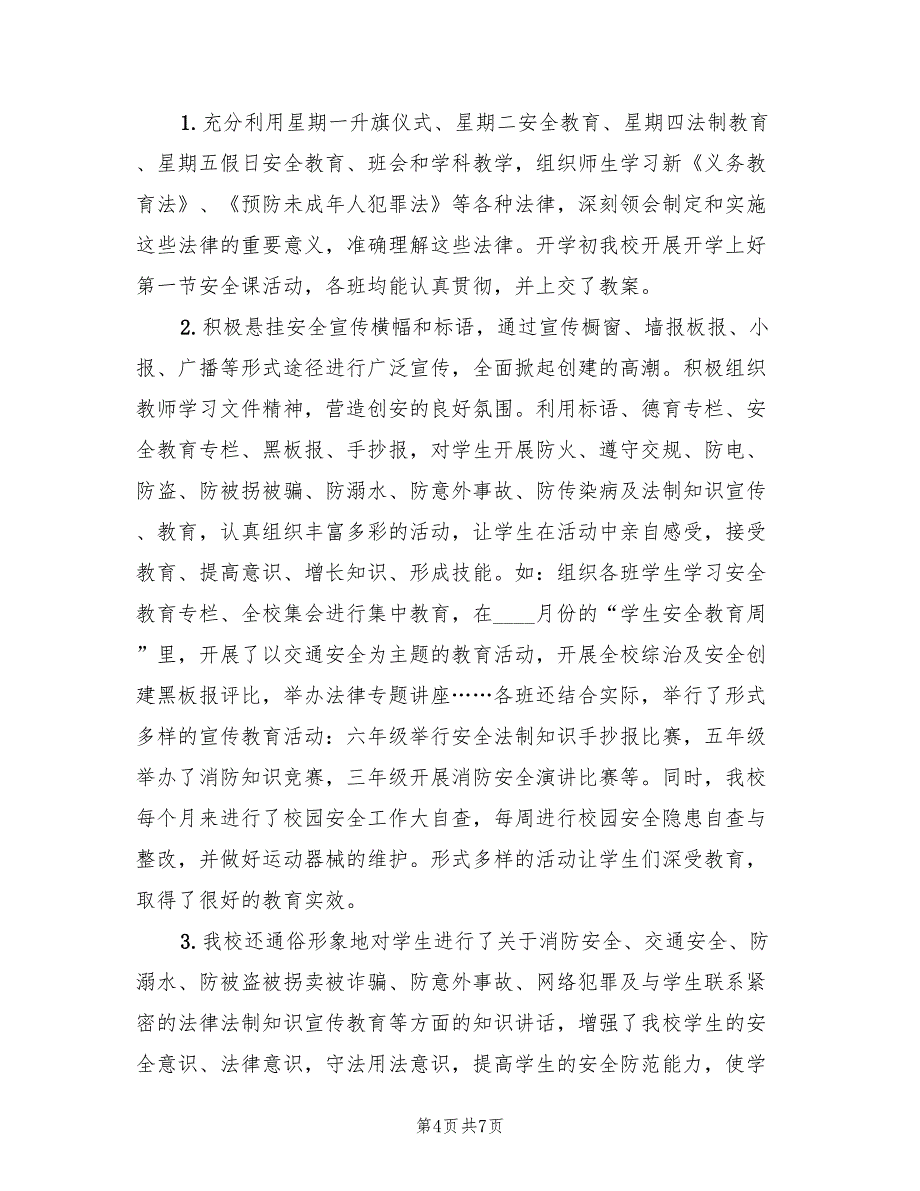 1. 充分利用星期一升旗仪式、星期二安全教育、星期四法制教育
、星期五假日安全教育、班会和学科教学，组织师生学习新《义务教
育法》、《预防未成年人犯罪法》等各种法律，深刻领会制定和实施
这些法律的重要意义，准确理解这些法律。开学初我校开展开学上好
第一节安全课活动，各班均能认真贯彻，并上交了教案。
2. 积极悬挂安全宣传横幅和标语，通过宣传橱窗、墙报板报、小
报、广播等形式途径进行广泛宣传，全面掀起创建的高潮。积极组织
教师学习文件精神，营造创安的良好氛围。利用标语、德育专栏、安
全教育专栏、黑板报、手抄报，对学生开展防火、遵守交规、防电、
防盗、防被拐被骗、防溺水、防意外事故、防传染病及法制知识宣传
、教育，认真组织丰富多彩的活动，让学生在活动中亲自感受，接受
教育、提高意识、增长知识、形成技能。如：组织各班学生学习安全
教育专栏、全校集会进行集中教育，在____月份的“学生安全教育周
”里，开展了以交通安全为主题的教育活动，开展全校综治及安全创
建黑板报评比，举办法律专题讲座……各班还结合实际，举行了形式
多样的宣传教育活动：六年级举行安全法制知识手抄报比赛，五年级
举办了消防知识竞赛，三年级开展消防安全演讲比赛等。同时，我校
每个月来进行了校园安全工作大自查，每周进行校园安全隐患自查与
整改，并做好运动器械的维护。形式多样的活动让学生们深受教育，
取得了很好的教育实效。
3. 我校还通俗形象地对学生进行了关于消防安全、交通安全、防
溺水、防被盗被拐卖被诈骗、防意外事故、网络犯罪及与学生联系紧
密的法律法制知识宣传教育等方面的知识讲话，增强了我校学生的安
全意识、法律意识，守法用法意识，提高学生的安全防范能力，使学
第4页共7页